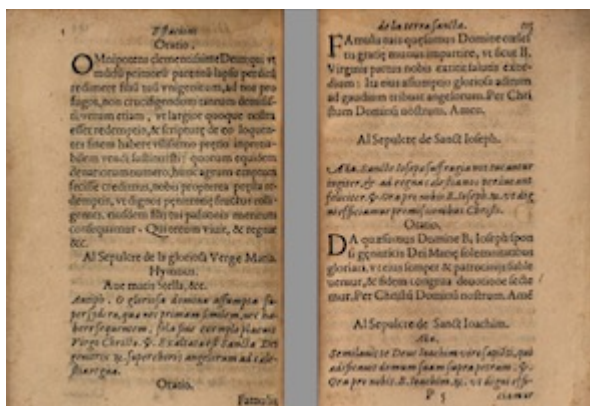 Estacions
Oratio.
OMnipotens clementissime Deus qui, vt
mũdũ primorũ parentũ lapsu perditũ
redimere filiũ tuũ vnigenitum, ad nos pro
fugos, non crucifigendum tantum demisi-
sti, verum etiam, vt largior quoque nostra
esset redemptio, & scripturę de eo loquen-
tes finem habere vilissimo pretio
vendi sustinuisti; quorum equidem
denariorum numero, hunc agrum emptum
fecisse credimus, nobis propterea populo re
demptis, vt dignos pęnitentię fructus colli-
gentes, eiusdem filij tui passionis meritum
consequamur. Qui tecum viuit, & regnat
&c.
Al Sepulcre de la gloriosa Verge Maria.
Hymnus.
Aue maris Stella, &c.
Antiph. O gloriosa domina assumpta su-
per sydera, quæ nec primam similem, nec ha-
bere sequentem, sola sine exemplo placuit
Virgo Christo. ℣. Exaltata est Sancta Dei
genitrix ℟. super choros angelorum ad cæle-
stia regna.
Oratio.
Famulis
de la terra sancta.
FAmulis tuis quęsumus Domine cælestis
gratię munus impartire, vt sicut B.
Virginis partus nobis extitit salutis exor-
dium: Ita eius assumptio gloriosa aditum
ad gaudium tribuat angelorum. Per Chri
stum Dominũ nostrum. Amen.
Al Sepulcre de Sanct Ioseph.
Aña. Sancte Ioseph suffragia nos tueantur
iugiter, & ad regna cælestia nos perducant
feliciter. ℣. Ora pro nobis B. Ioseph. ℟. vt dig
ni efficiamur promissionibus Christi.
Oratio.
DA quæsumus Domine B. Ioseph spon
si genitricis Dei Marię solemnitatibus
gloriari, vt eius semper & patrocinijs suble
uemur, & fidem congrua deuotione secte
mur. Per Christũ Dominũ nostrum. Amẽ
Al Sepulcre de Sanct Ioachim.
Aña.
Similauit te Deus Ioachim viro sapiẽti, qui
adificauit domum suam supra petram. ℣.
Ora pro nobis. B. Ioachim. ℟. vt digni effi-
P 5 ciamur